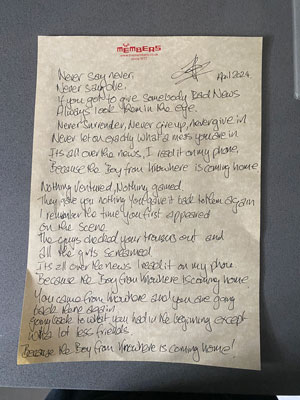 MEMBERS
April 2024
Never say never
Never say die
If you got to give somebody Bad News
Always look them in the eye
Never Surrender, Never Give up, never give in
Never let on exactly what a mess you're in
Its all over the news, I read it on my phone
Because the Boy from Nowhere is coming home
Nothing ventured, Nothing gained
They gave you nothing You gave it back to them again
I remember the time you first appeared
on the scene
The guys checked your trousers out and
all the girls screamed
Its all over the news I read it on my phone
Because the Boy from Nowhere is coming home
You came from Nowhere and you are going
back there again
Going back to what you had in the beginning except
with a lot less friends
Because the Boy from Nowhere is coming home!